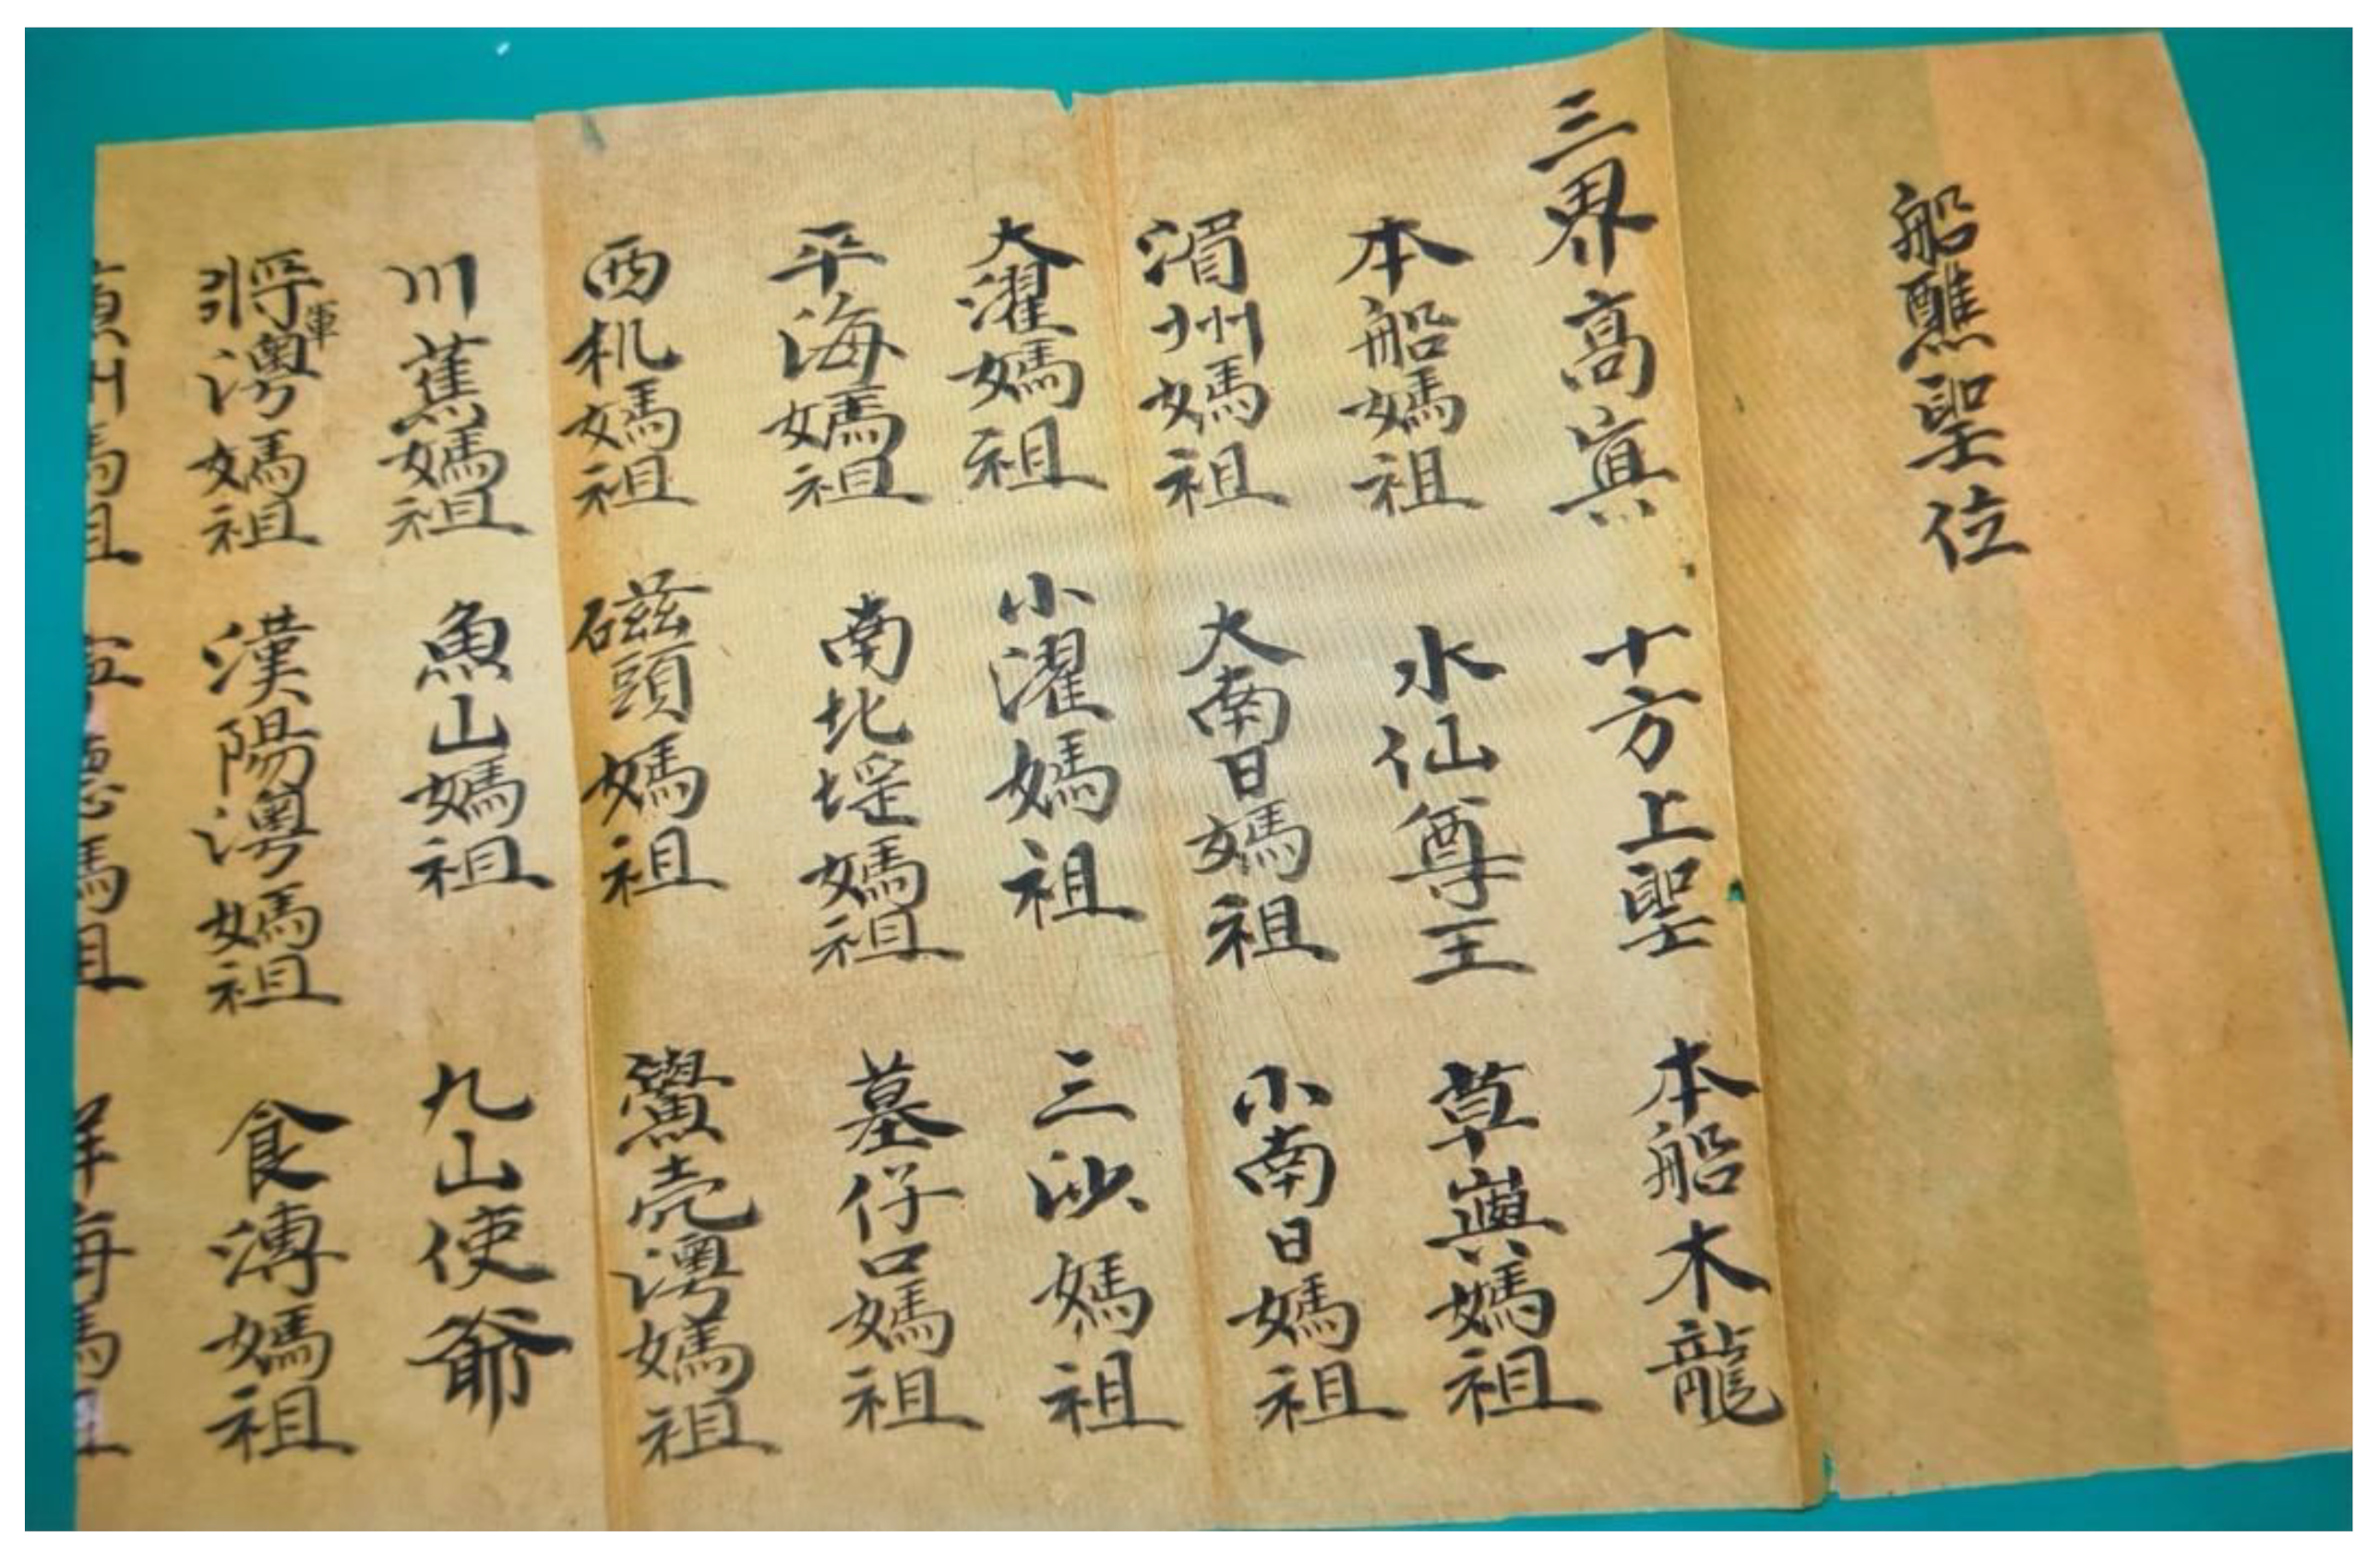 船醮聖位
三界高真 十方上聖 本船木龍
本船媽祖 水仙尊王 草嶼媽祖
湄州媽祖 大南日媽祖 小南日媽祖
大濯媽祖 小濯媽祖 三沙媽祖
平海媽祖 南北埕媽祖 墓仔口媽祖
西机媽祖 磁頭媽祖 鱟壳澳媽祖
川蕉媽祖 魚山媽祖 九山使爺
將軍澳媽祖 漢陽澳媽祖 食漙媽祖
州媽祖 德媽祖 海媽祖